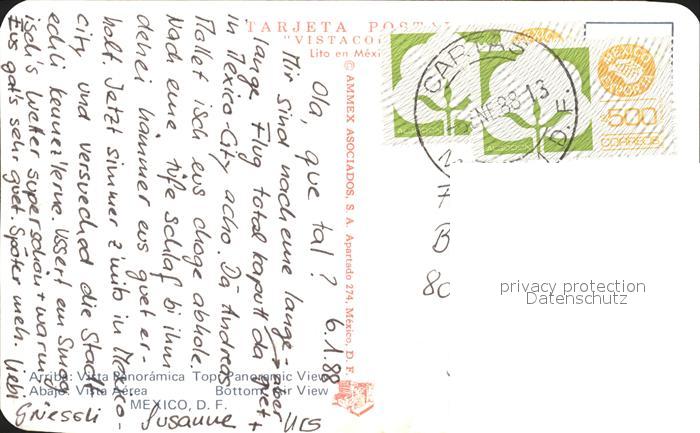 TARJETA POSTAL
"VISTACO
Lito en Méxi
© AMMEX ASOCIADOS, S. A. Apartado 274, México, D. F.
6.1.88
Olá, que tal?
Mir sind nach eme lange - aber
lange Flug total kaputt da guet +
in Mexico-City acho. Dä Andreas
Mallet isch eus choge abhole.
Nach eme tüffe schlaf bi ihm
dehei hämmer eus guet er-
holt. Jetzt simmer z'mits in Mexico-
City und versueched die Stadt
echli kennez'lerne. Ussert em Smog
isch's Wetter superschön + warm
Eus gaht's sehr guet. Später meh. Liebi
Grüessli Susanne Urs
Arriba: Vista Panorámica Top: Panoramic View
Abajo: Vista Aérea Bottom: Air View
MEXICO, D. F.
CARTAS
ENE 88-13
D. F.
MEXICO
EXPORTA
500
CORREOS
ALGODON
B
80
privacy protection
Datenschutz